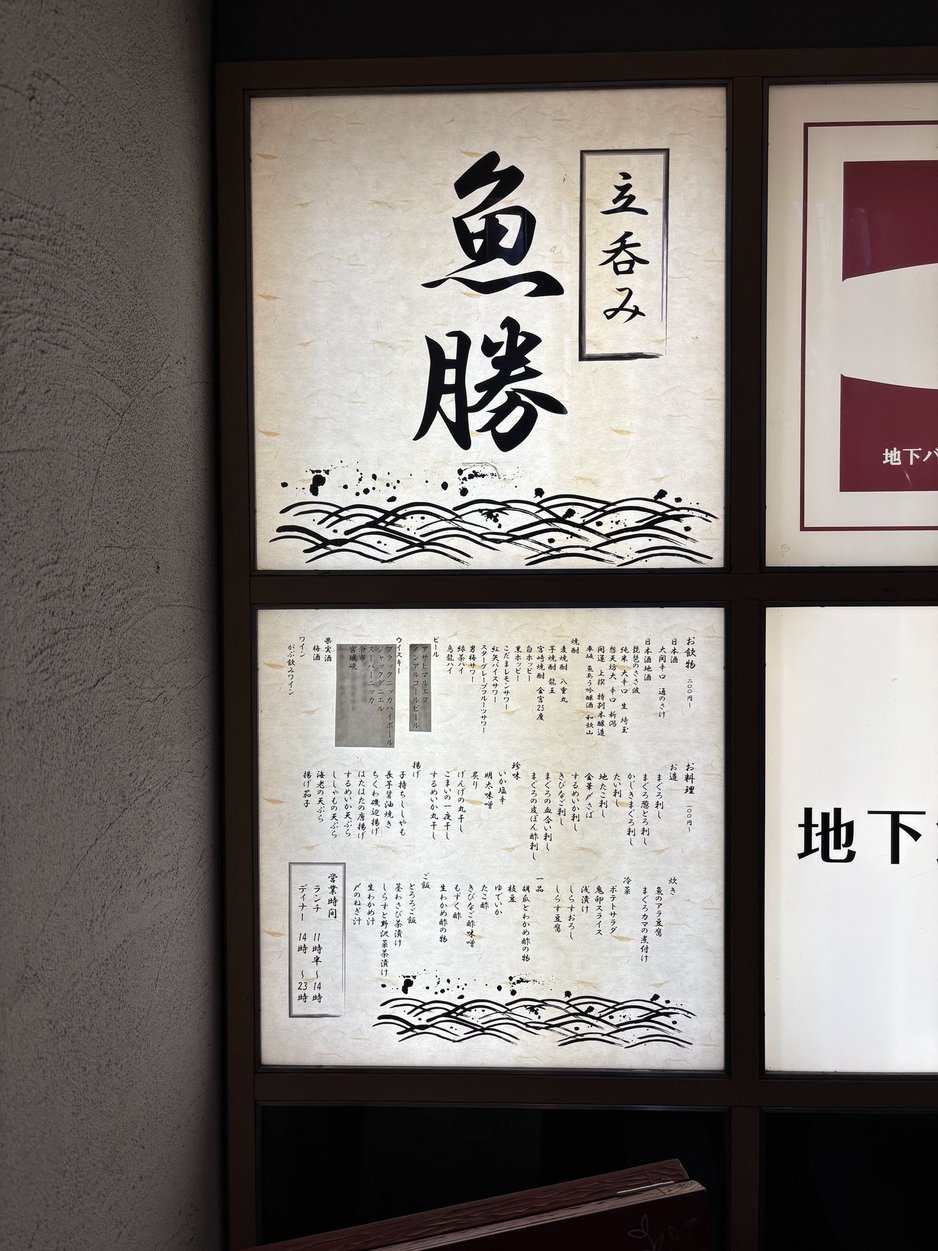 立呑み
魚勝
地下パ
地下
お飲物 二〇〇円~
日本酒
大関辛口 通のさけ
琵琶のささ波
日本酒地酒
純米 大辛口 生 埼玉
想天坊大辛口 新潟
開運 上撰 特別本醸造
焼酎
麦焼酎 八重丸
芋焼酎 龍王
宮崎焼酎 金宮25度
白ホッピー
黒ホッピー
こだまレモンサワー
紅矢バイスサワー
スターグレープフルーツサワー
男梅サワー
緑茶ハイ
烏龍ハイ
ビール
アサヒマルエフ
ノンアルコールビール
ウイスキー
ブラックニッカハイボール
ジャックダニエル
スーパーニッカ
余市
宮城峡
果実酒
梅酒
ワイン
がぶ飲みワイン
お料理 一〇〇円~
お造
まぐろ刺し
まぐろ葱とろ刺し
かじきまぐろ刺し
たい刺し
地たこ刺し
金華〆さば
するめいか刺し
きびなご刺し
まぐろの血合い刺し
まぐろの皮ぽん酢刺し
珍味
いか塩辛
明太味噌
炙り
げんげの丸干し
こまいの一夜干し
するめいか丸干し
揚げ
子持ちししゃも
長芋醤油焼き
ちくわ磯辺揚げ
はたはたの唐揚げ
するめいか天ぷら
ししゃもの天ぷら
海老の天ぷら
揚げ茄子
炊き
魚のアラ豆腐
まぐろカマの煮付け
冷菜
ポテトサラダ
鬼卯スライス
浅漬け
しらすおろし
しらす豆腐
一品
胡瓜とわかめ酢の物
枝豆
ゆでいか
たこ酢
きびなご酢味噌
もずく酢
生わかめ酢の物
ご飯
とろろご飯
茎わさび茶漬け
しらすと野沢菜茶漬け
生わかめ汁
〆のねぎ汁
営業時間
ランチ 11時半~14時
ディナー 14時~23時